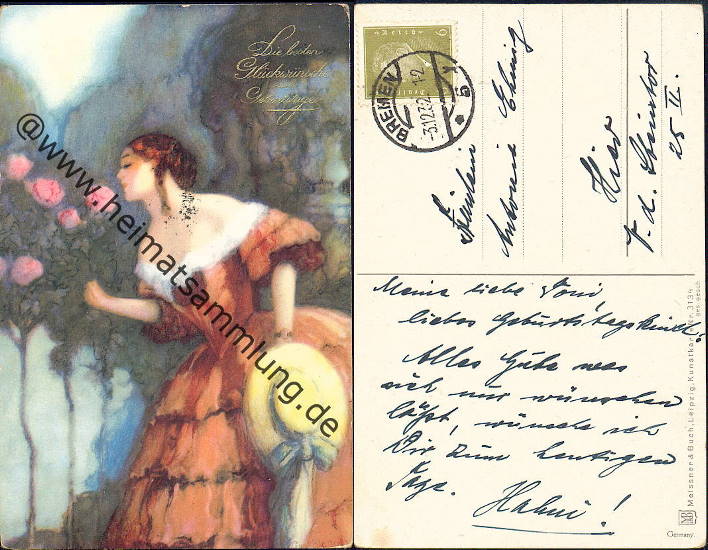 Die besten
Glückwünsche
zum
Geburtstage
@www.heimatsammlung.de
BREMEN
-3.12.32
6
Fräulein
Antonie
Hier
V. d. Steintor
25 II.
Meine liebe Toni,
liebes Geburtstagskind!
Alles Gute was
sich nur wünschen
läßt, wünsche ich
Dir zum heutigen
Tage.
Meissner & Buch, Leipzig. Kunstkarten Nr. 3134
ges. gesch.
MB
Germany.